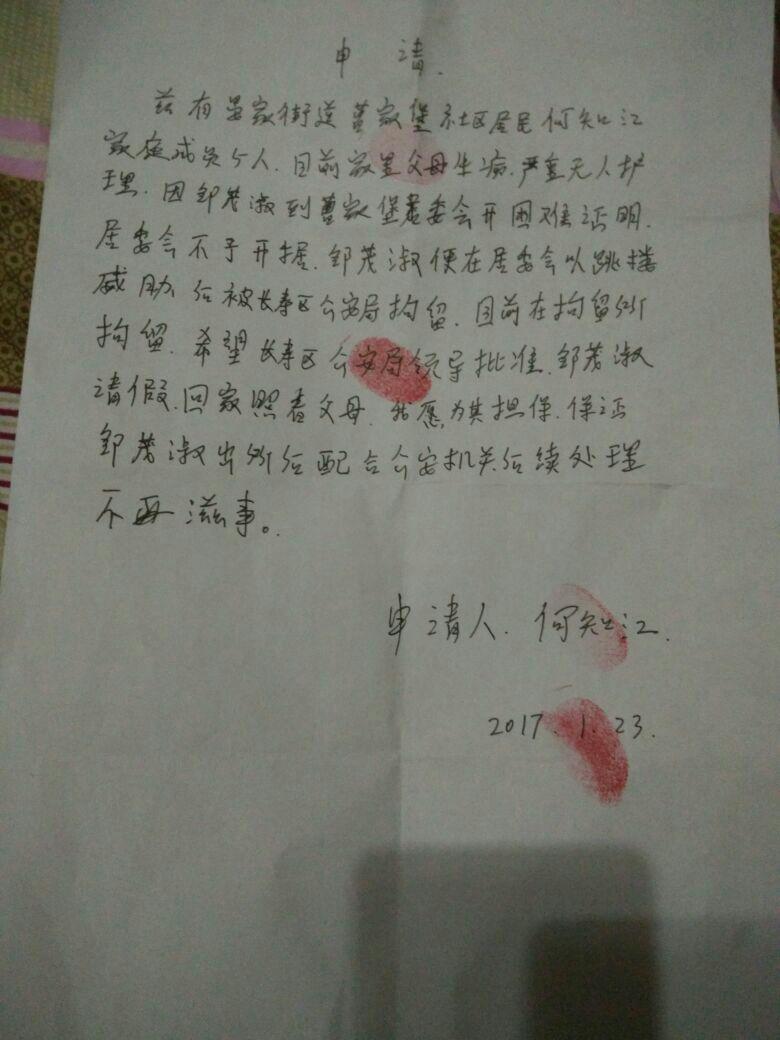 申 请.
兹有晏家街道曹家堡社区居民何知江
家庭成员5人.目前家里父母生病,严重无人护
理.因邹茂淑到曹家堡居委会开困难证明.
居委会不予开据.邹茂淑便在居委会以跳楼
威胁后被长寿区公安局拘留.目前在拘留所
拘留.希望长寿区公安局领导批准.邹茂淑
请假.回家照看父母.我愿为其担保.保证
邹茂淑出所后配合公安机关后续处理
不再滋事。
申请人.何知江.
2017.1.23.